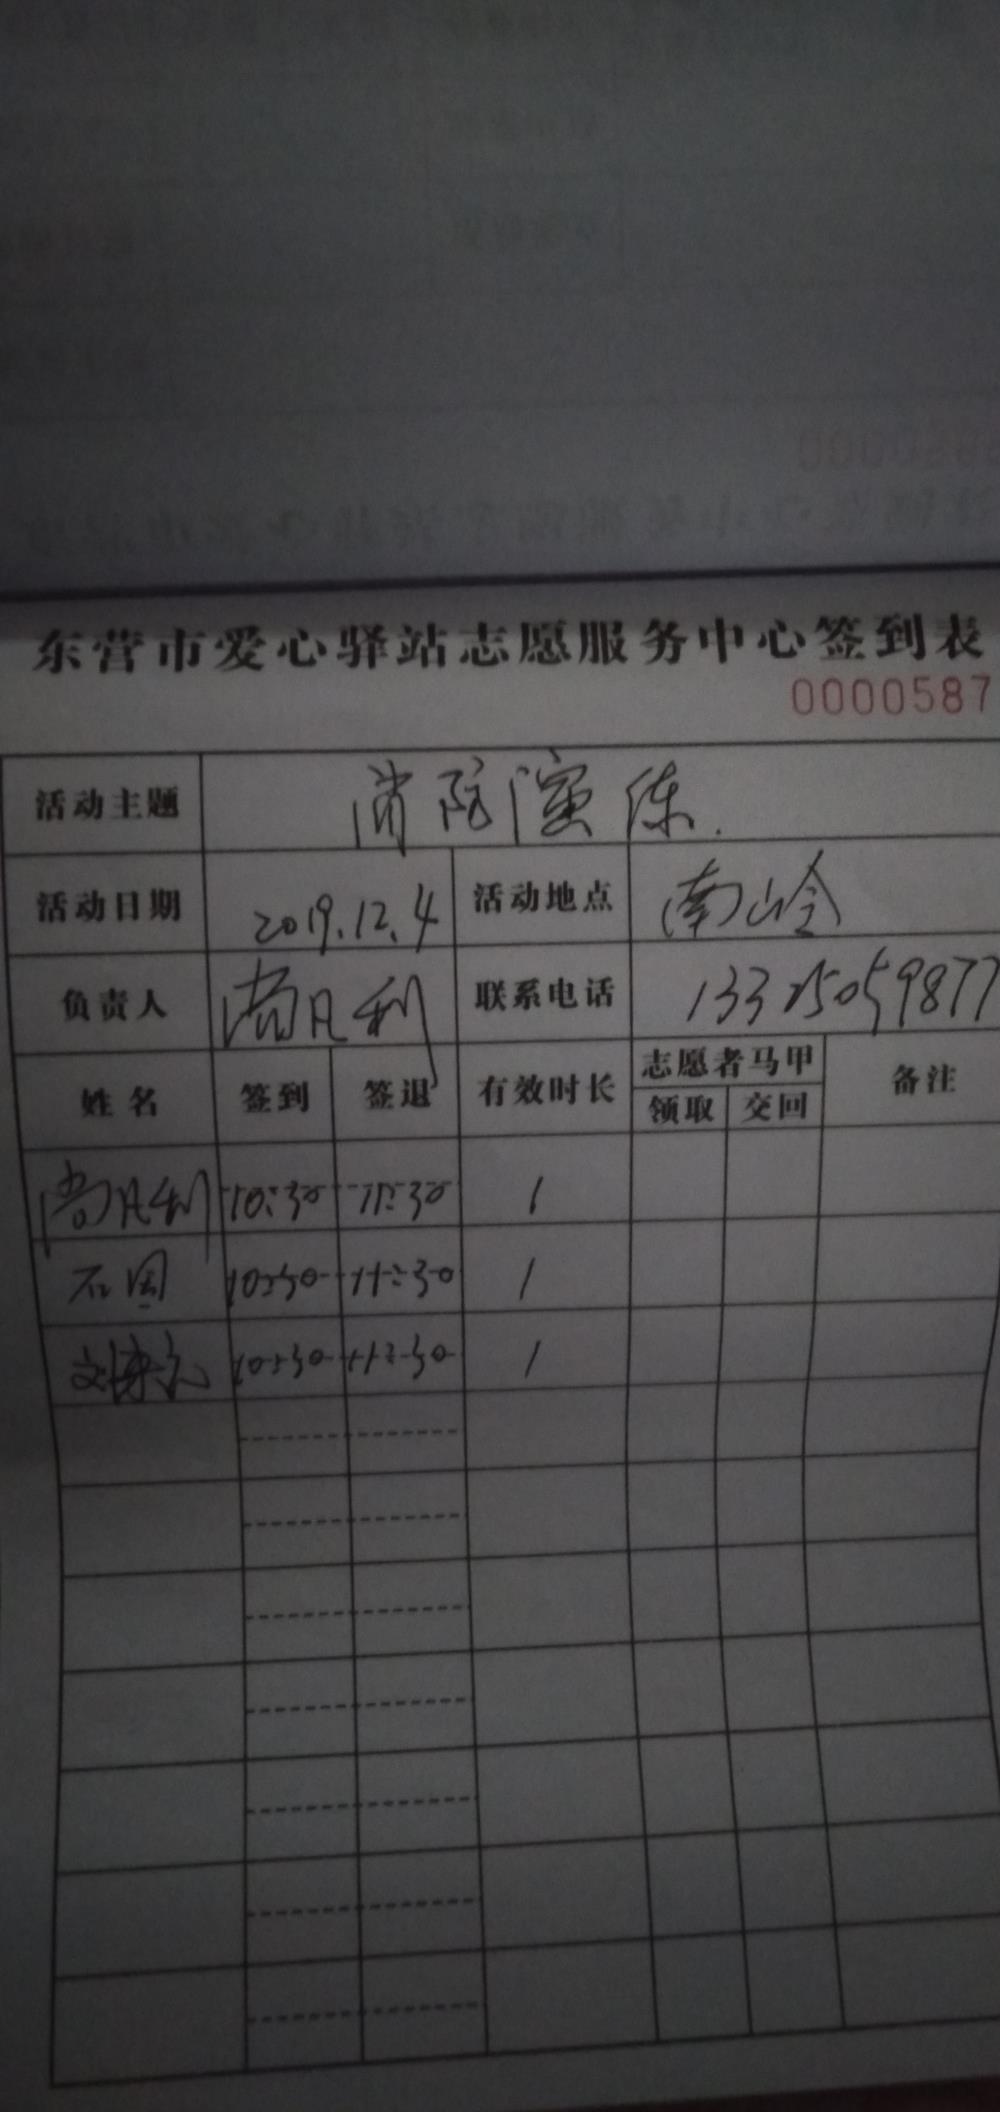 东营市爱心驿站志愿服务中心签到表
0000587
活动主题 消防演练.
活动日期 2019.12.4 活动地点 南山岭
负责人 尚凡利 联系电话 13325059877
姓名 签到 签退 有效时长 志愿者马甲 备注
领取 交回
尚凡利 10:30 11:30 1
石国 10:30 11:30 1
10:30 11:30 1